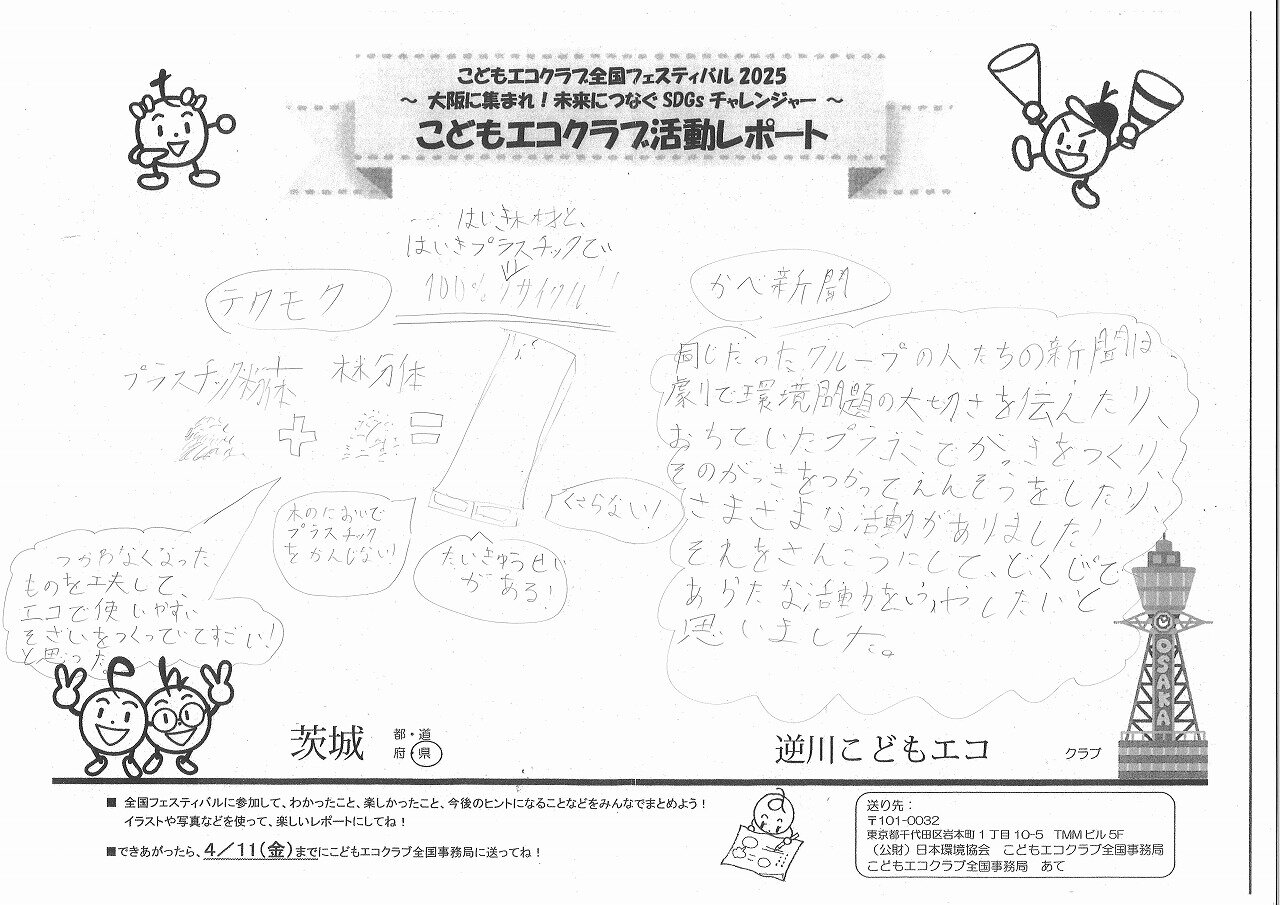 こどもエコクラブ全国フェスティバル 2025
～ 大阪に集まれ！未来につなぐ SDGs チャレンジャー ～
こどもエコクラブ活動レポート
はいき木材と、
はいきプラスチックで
100%リサイクル!!
テクモク
プラスチック粉体
木材分体
木のにおいで
プラスチック
をかんじない!
たいきゅうせい
がある!
くさらない!
つかわなくなった
ものを工夫して、
エコで使いやすい
そざいをつくっていてすごい!
と思った。
かべ新聞
同じだったグループの人たちの新聞は、
劇で環境問題の大切さを伝えたり、
おちていたプラゴミでがっきをつくり、
そのがっきをつかってえんそうをしたり、
さまざまな活動がありました!
それをさんこうにして、どくじで
あらたな活動をふやしたいと
思いました。
OSAKA
茨城
都・道
府・県
逆川こどもエコ
クラブ
■ 全国フェスティバルに参加して、わかったこと、楽しかったこと、今後のヒントになることなどをみんなでまとめよう！
イラストや写真などを使って、楽しいレポートにしてね！
■できあがったら、4／11(金)までにこどもエコクラブ全国事務局に送ってね！
送り先：
〒101-0032
東京都千代田区岩本町１丁目 10-5　TMM ビル 5F
（公財）日本環境協会　こどもエコクラブ全国事務局
こどもエコクラブ全国事務局　あて